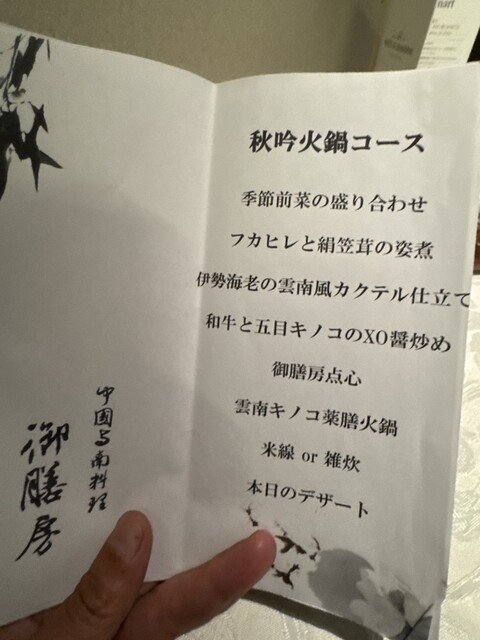 秋吟火鍋コース
季節前菜の盛り合わせ
フカヒレと絹笠茸の姿煮
伊勢海老の雲南風カクテル仕立て
和牛と五目キノコのXO醤炒め
御膳房点心
雲南キノコ薬膳火鍋
米線 or 雑炊
本日のデザート
中國雲南料理
御膳房